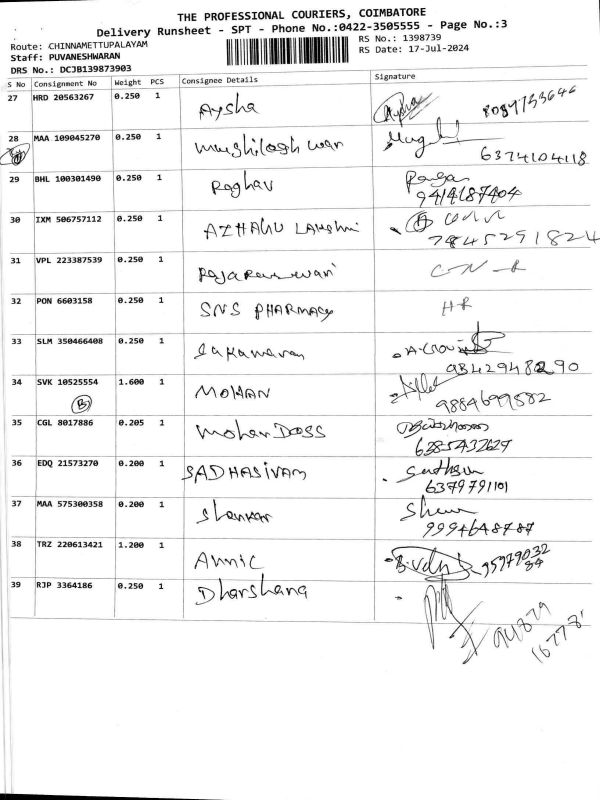 THE PROFESSIONAL COURIERS, COIMBATORE
Delivery Runsheet - SPT - Phone No.:0422-3505555 - Page No.:3
Route: CHINNAMETTUPALAYAM
RS No.: 1398739
Staff: PUVANESHWARAN
RS Date: 17-Jul-2024
DRS No.: DCJB139873903
S No Consignment No Weight PCS Consignee Details Signature
27 HRD 20563267 0.250 1 Aysha Aysha 8089753646
28 MAA 109045270 0.250 1
6374104118
29 BHL 100301490 0.250 1 Raghav
30 IXM 506757112 0.250 1 AZHAGU LAKSHMI
7845291824
31 VPL 223387539 0.250 1 Rajarajeswari
32 PON 6603158 0.250 1 SNS PHARMACY HR
33 SLM 350466408 0.250 1
34 SVK 10525554 1.600 1 MOHAN
B
9884699582
35 CGL 8017886 0.205 1 Mohan Dass
6385432627
36 EDQ 21573270 0.200 1 SADHASIVAM
6379791101
37 MAA 575300358 0.200 1 Shankar
9994648787
38 TRZ 220613421 1.200 1 95979032
84
39 RJP 3364186 0.250 1 Dharshana
94879
16778